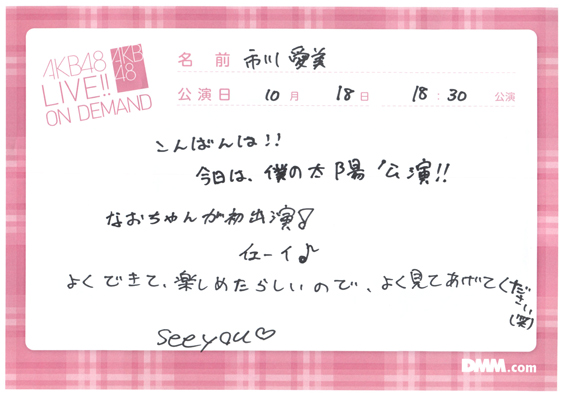 AKB48
LIVE!!
ON DEMAND
AKB
48
名 前 市川 愛美
公演日 10月 18日 18:30 公演
こんばんは!!
今日は、僕の太陽公演!!
なおちゃんが初出演♪
イェーイ♪
よくできて、楽しめたらしいので、よく見てあげてください(笑)
see you♡
DMM.com